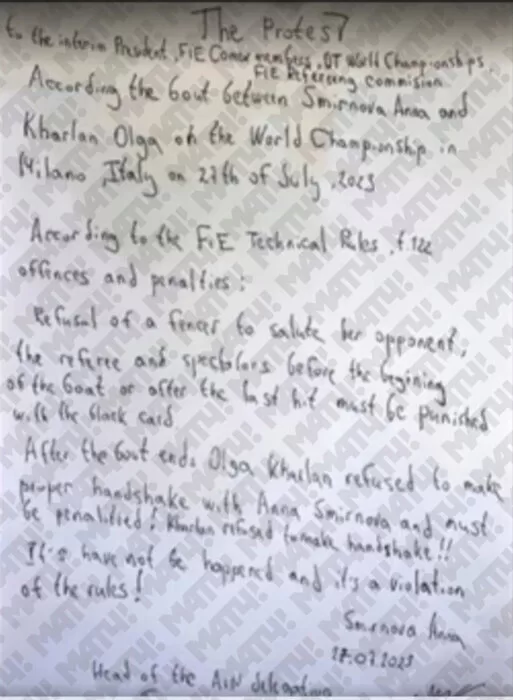 The Protest
to the interim President, FiE Comex members, DT World Championships,
FiE Refereeing commision
According the bout between Smirnova Anna and
Kharlan Olga on the World Championship in
Milano, Italy on 27th of July, 2023
According to the FiE Technical Rules, t.122
offinces and penalties:
Refusal of a fencer to salute her opponent,
the referee and spectators before the begining
of the bout or after the last hit must be punished
with the black card
After the bout ends Olga Kharlan refused to make
proper handshake with Anna Smirnova and must
be penalified! Kharlan refused to make handshake!!
It's have not be happened and it's a violation
of the rules!
Smirnova Anna
27.07.2023
Head of the AIN delegation
MATY!